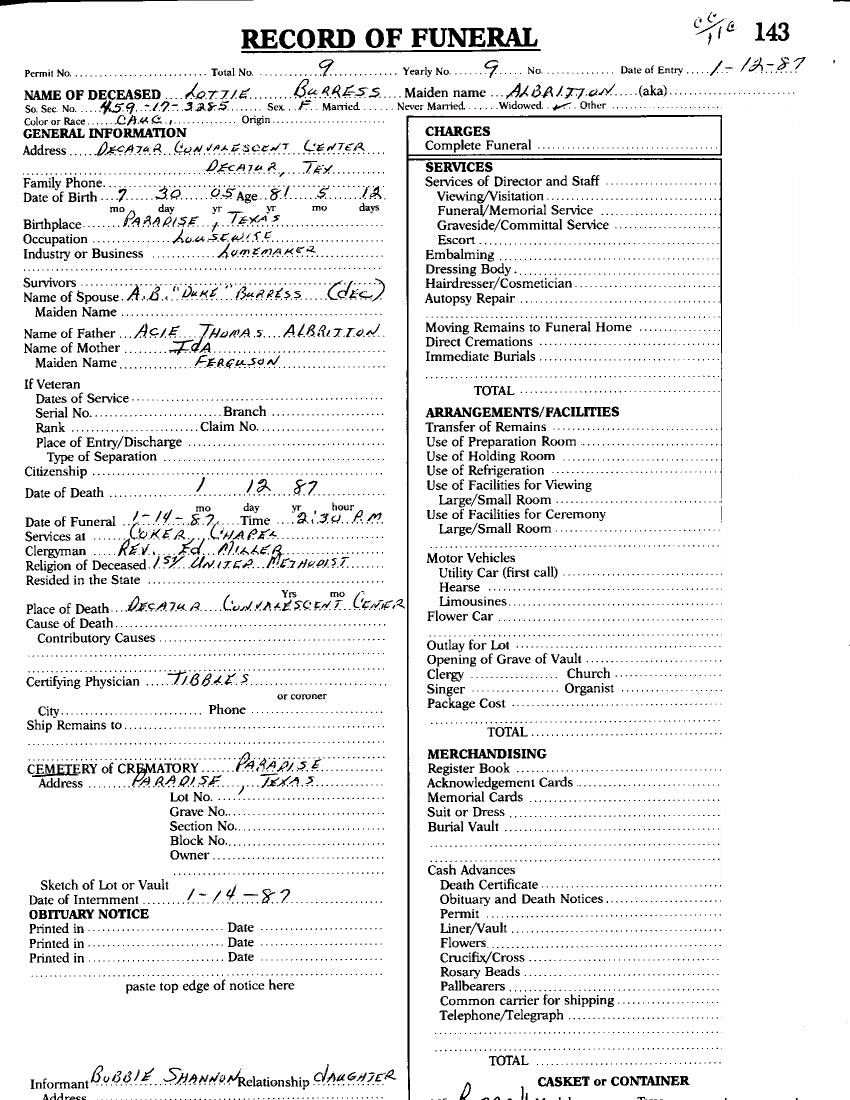 RECORD OF FUNERAL 143
Permit No. Total No. 9 Yearly No. 9 No. Date of Entry 1-12-87
NAME OF DECEASED LOTTIE BURRESS Maiden name ALBRITTON (aka)
So. Sec. No. 459-17-3285 Sex F Married Never Married Widowed ✓ Other
Color or Race CAUC. Origin
GENERAL INFORMATION
Address DECATUR CONVALESCENT CENTER
DECATUR, TEX
Family Phone
Date of Birth 7 30 05 Age 81 5 12
mo day yr yr mo days
Birthplace PARADISE, TEXAS
Occupation HOUSEWISE
Industry or Business HOMEMAKER
Survivors
Name of Spouse A.B. "DUKE" BURRESS (dec)
Maiden Name
Name of Father ACIE THOMAS ALBRITTON
Name of Mother IdA
Maiden Name FERGUSON
If Veteran
Dates of Service
Serial No. Branch
Rank Claim No.
Place of Entry/Discharge
Type of Separation
Citizenship
Date of Death 1 12 87
mo day yr hour
Date of Funeral 1-14-87 Time 2:30 P.M
Services at COKER CHAPEL
Clergyman REV. Ed MILLER
Religion of Deceased 1st UNITED METHODIST
Resided in the State
Yrs mo
Place of Death DECATUR CONVALESCENT CENTER
Cause of Death
Contributory Causes
Certifying Physician TIBBLES
or coroner
City Phone
Ship Remains to
CEMETERY of CREMATORY PARADISE
Address PARADISE, TEXAS
Lot No.
Grave No.
Section No.
Block No.
Owner
Sketch of Lot or Vault
Date of Internment 1-14-87
OBITUARY NOTICE
Printed in Date
Printed in Date
Printed in Date
paste top edge of notice here
Informant BOBBIE SHANNON Relationship dAUGHTER
Address
CHARGES
Complete Funeral
SERVICES
Services of Director and Staff
Viewing/Visitation
Funeral/Memorial Service
Graveside/Committal Service
Escort
Embalming
Dressing Body
Hairdresser/Cosmetician
Autopsy Repair
Moving Remains to Funeral Home
Direct Cremations
Immediate Burials
TOTAL
ARRANGEMENTS/FACILITIES
Transfer of Remains
Use of Preparation Room
Use of Holding Room
Use of Refrigeration
Use of Facilities for Viewing
Large/Small Room
Use of Facilities for Ceremony
Large/Small Room
Motor Vehicles
Utility Car (first call)
Hearse
Limousines
Flower Car
Outlay for Lot
Opening of Grave of Vault
Clergy Church
Singer Organist
Package Cost
TOTAL
MERCHANDISING
Register Book
Acknowledgement Cards
Memorial Cards
Suit or Dress
Burial Vault
Cash Advances
Death Certificate
Obituary and Death Notices
Permit
Liner/Vault
Flowers
Crucifix/Cross
Rosary Beads
Pallbearers
Common carrier for shipping
Telephone/Telegraph
TOTAL
CASKET or CONTAINER